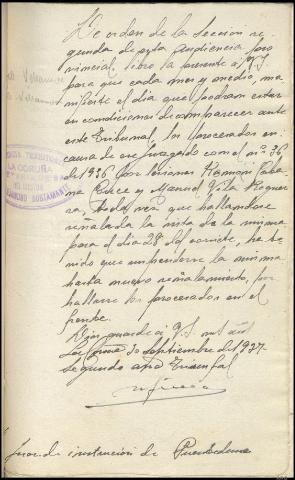 De orden de la Sección se
gunda de esta Audiencia pro
vincial libro la presente a V.S.
para que cada mes y medio, ma
nifieste el dia que podran estar
en condiciones de comparecer ante
este Tribunal los procesados en
causa de ese juzgado con el nº 36
de 1936 por lesiones Ramón
y Manuel Vila
toda vez que hallandose
señalada la vista de la misma
para el dia 28 del corriente, ha te
nido que suspenderse la misma
hasta nuevo señalamiento, por
hallarse los procesados en el
frente.
Dios guarde a V.S. ms. añs.
La Coruña 30 septiembre de 1937.
Segundo año Triunfal
LA CORUÑA
Juez de instrucción de Puentedeume